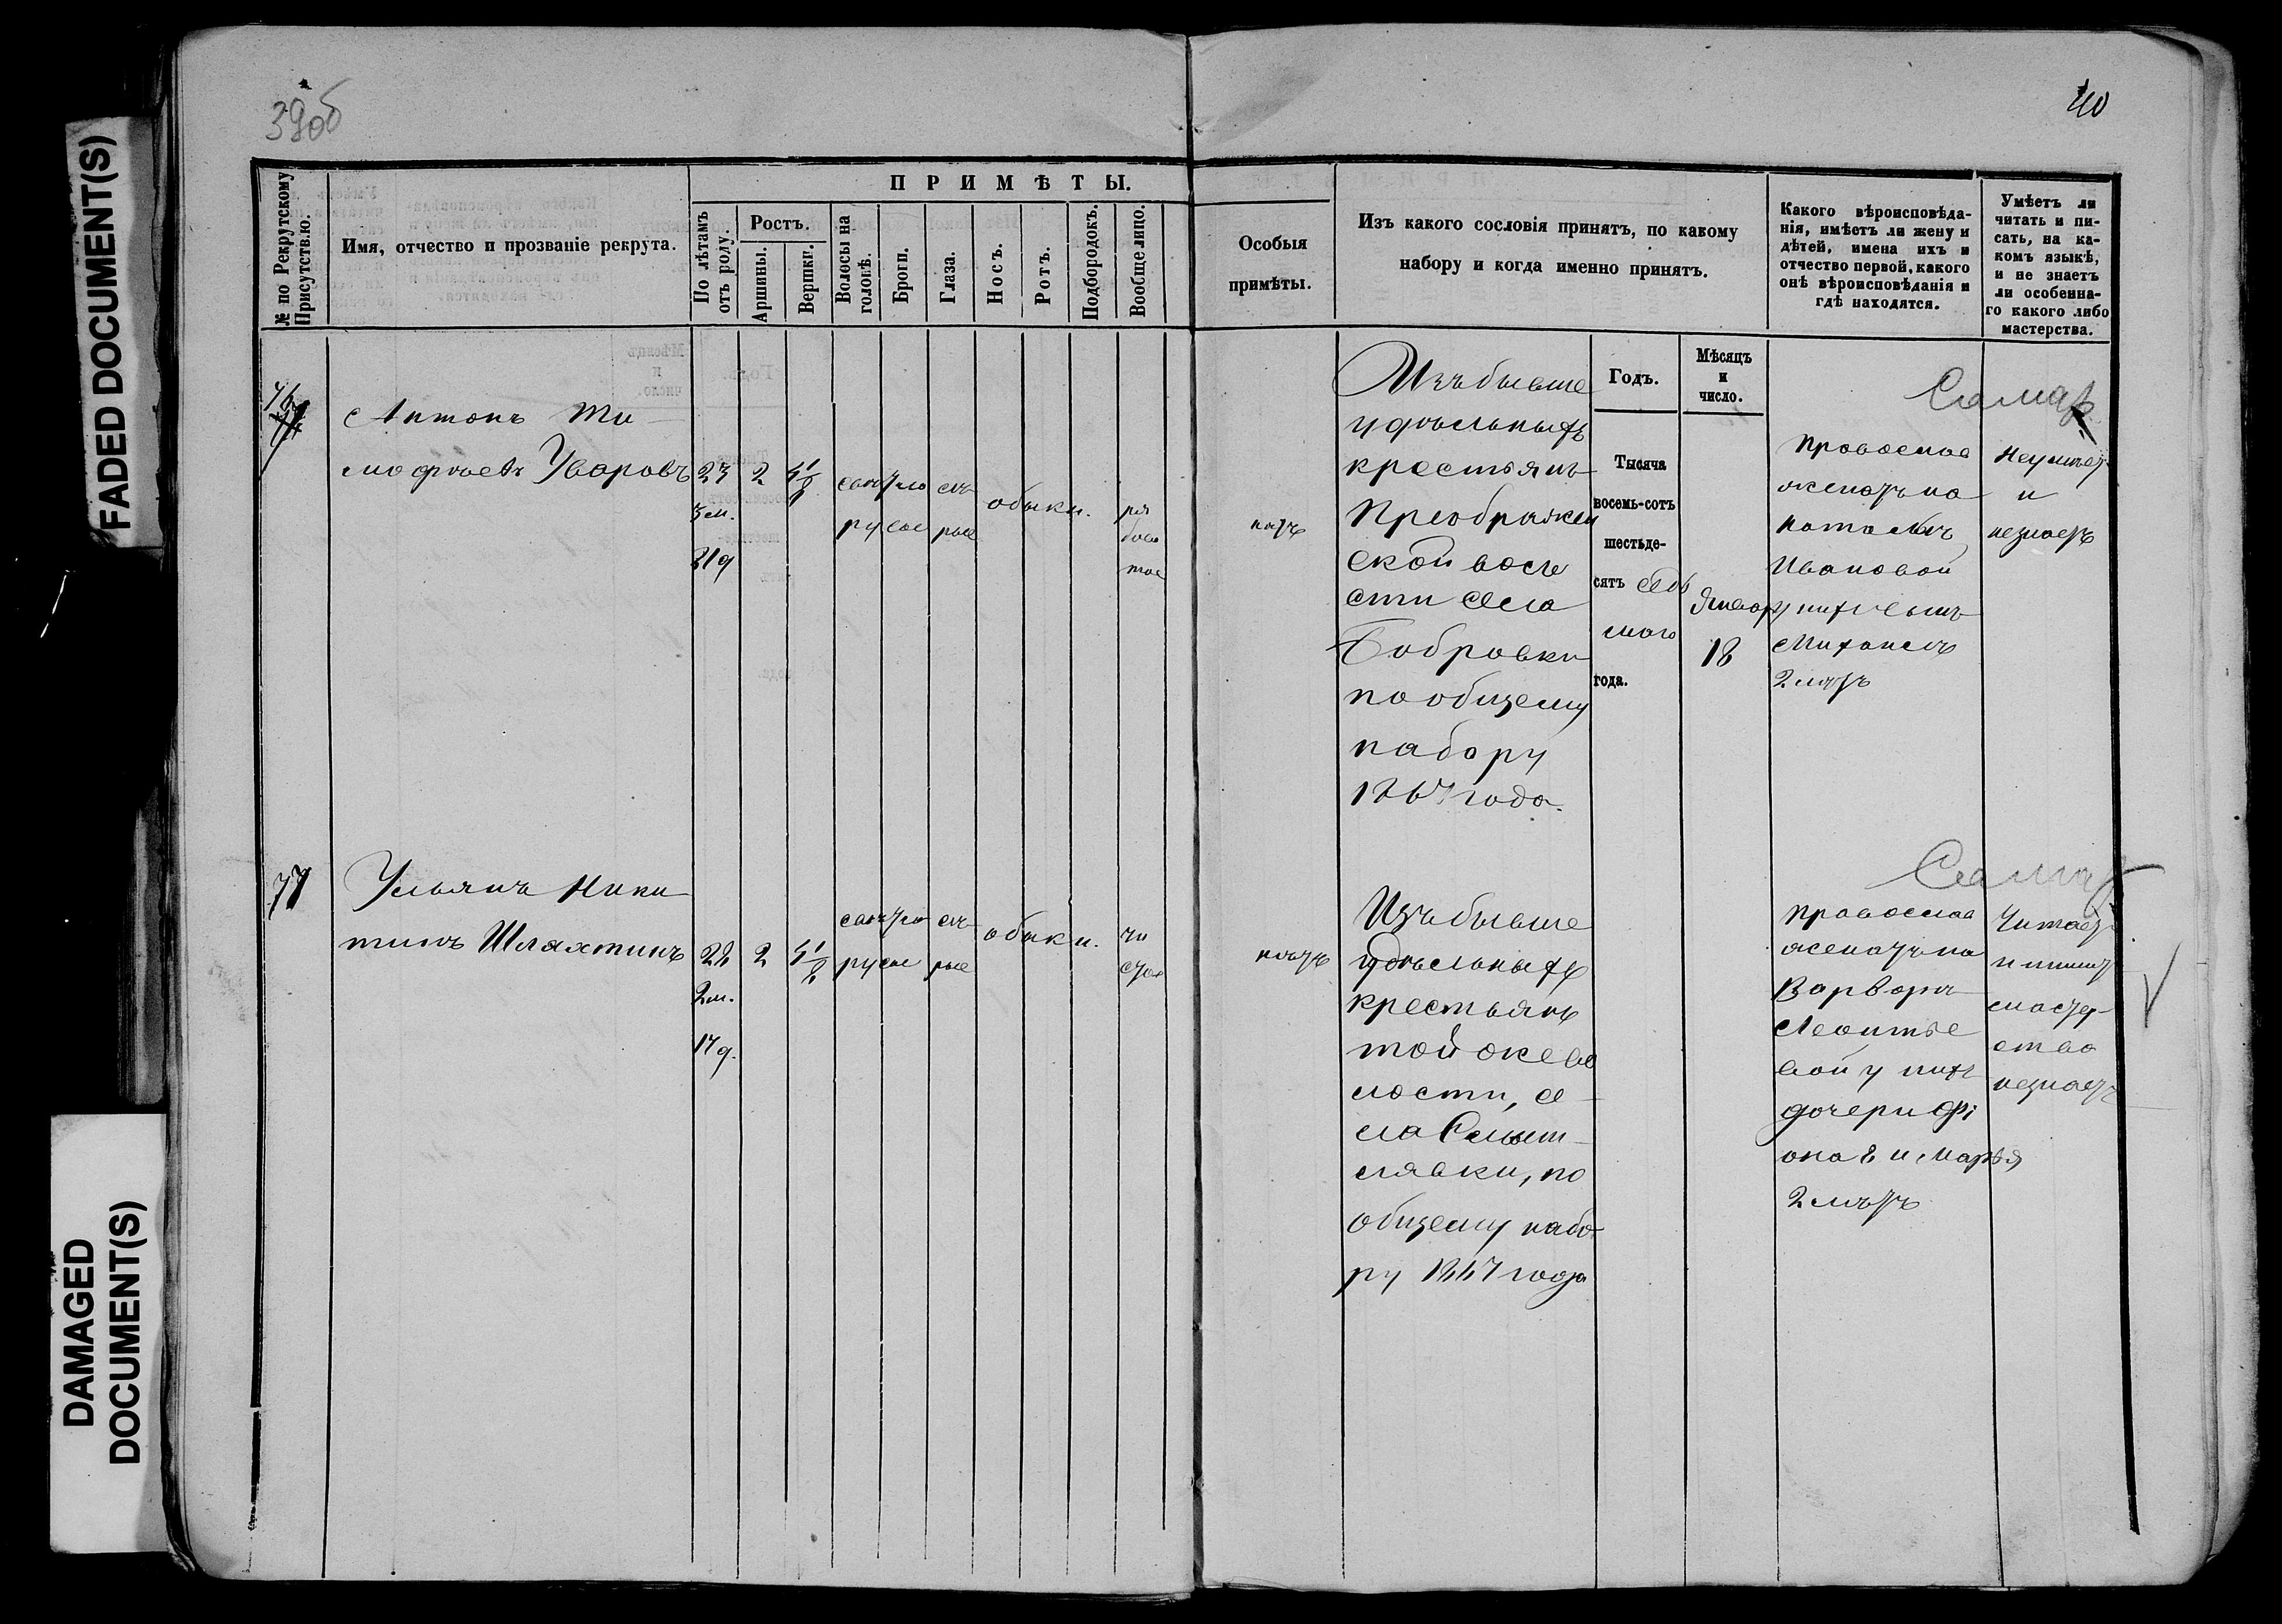 39об
40
FADED DOCUMENT(S)
DAMAGED
DOCUMENT(S)
№ по Рекрутскому
Присутствію.
Имя, отчество и прозваніе рекрута.
ПРИМѢТЫ.
По лѣтамъ
отъ роду.
Ростъ.
Аршины.
Вершки.
Волосы на
головѣ.
Брови.
Глаза.
Носъ.
Ротъ.
Подбородокъ.
Вообще лицо.
Особыя
примѣты.
Изъ какого сословія принятъ, по какому
набору и когда именно принятъ.
Какого вѣроисповѣда-
нія, имѣетъ ли жену и
дѣтей, имена ихъ и
отчество первой, какого
онѣ вѣроисповѣданія и
гдѣ находятся.
Умѣетъ ли
читать и пи-
сать, на ка-
комъ языкѣ,
и не знаетъ
ли особенна-
го какого либо
мастерства.
76
Антонъ Ти-
мофѣевъ Уваровъ
2
свѣтло
русые
сѣ-
рые
обыкн.
ря
бова
тое
нѣтъ
Изъ бывше
удѣльныхъ
крестьянъ
Преображен
ской воло
сти села
Бобровки
по общему
набору
1867 года.
Годъ.
Тысяча
восемь-сотъ
шестьде-
сятъ седь
маго
года.
Мѣсяцъ
и
число.
Январ
18
Самар
Православ
женатъ на
Натальѣ
Ивановой
у нихъ сынъ
Михаилъ
2 лѣтъ
Неумѣет
и
незнаетъ
77
Ульянъ Ники
тинъ Шляхтинъ
2
2 м.
17 д.
свѣтло
русые
сѣ-
рые
обыкн.
чи
стое
нѣтъ
Изъ бывше
удѣльныхъ
крестьянъ
той же во
лости, се-
ла
по
общему набо-
ру 1867 года
Самар
Православ
женатъ на
Варварѣ
Леонтье
вой у нихъ
дочери Фі
она 8 и Марья
2 лѣтъ
Читаетъ
и пишет
мастер-
ство
незнает